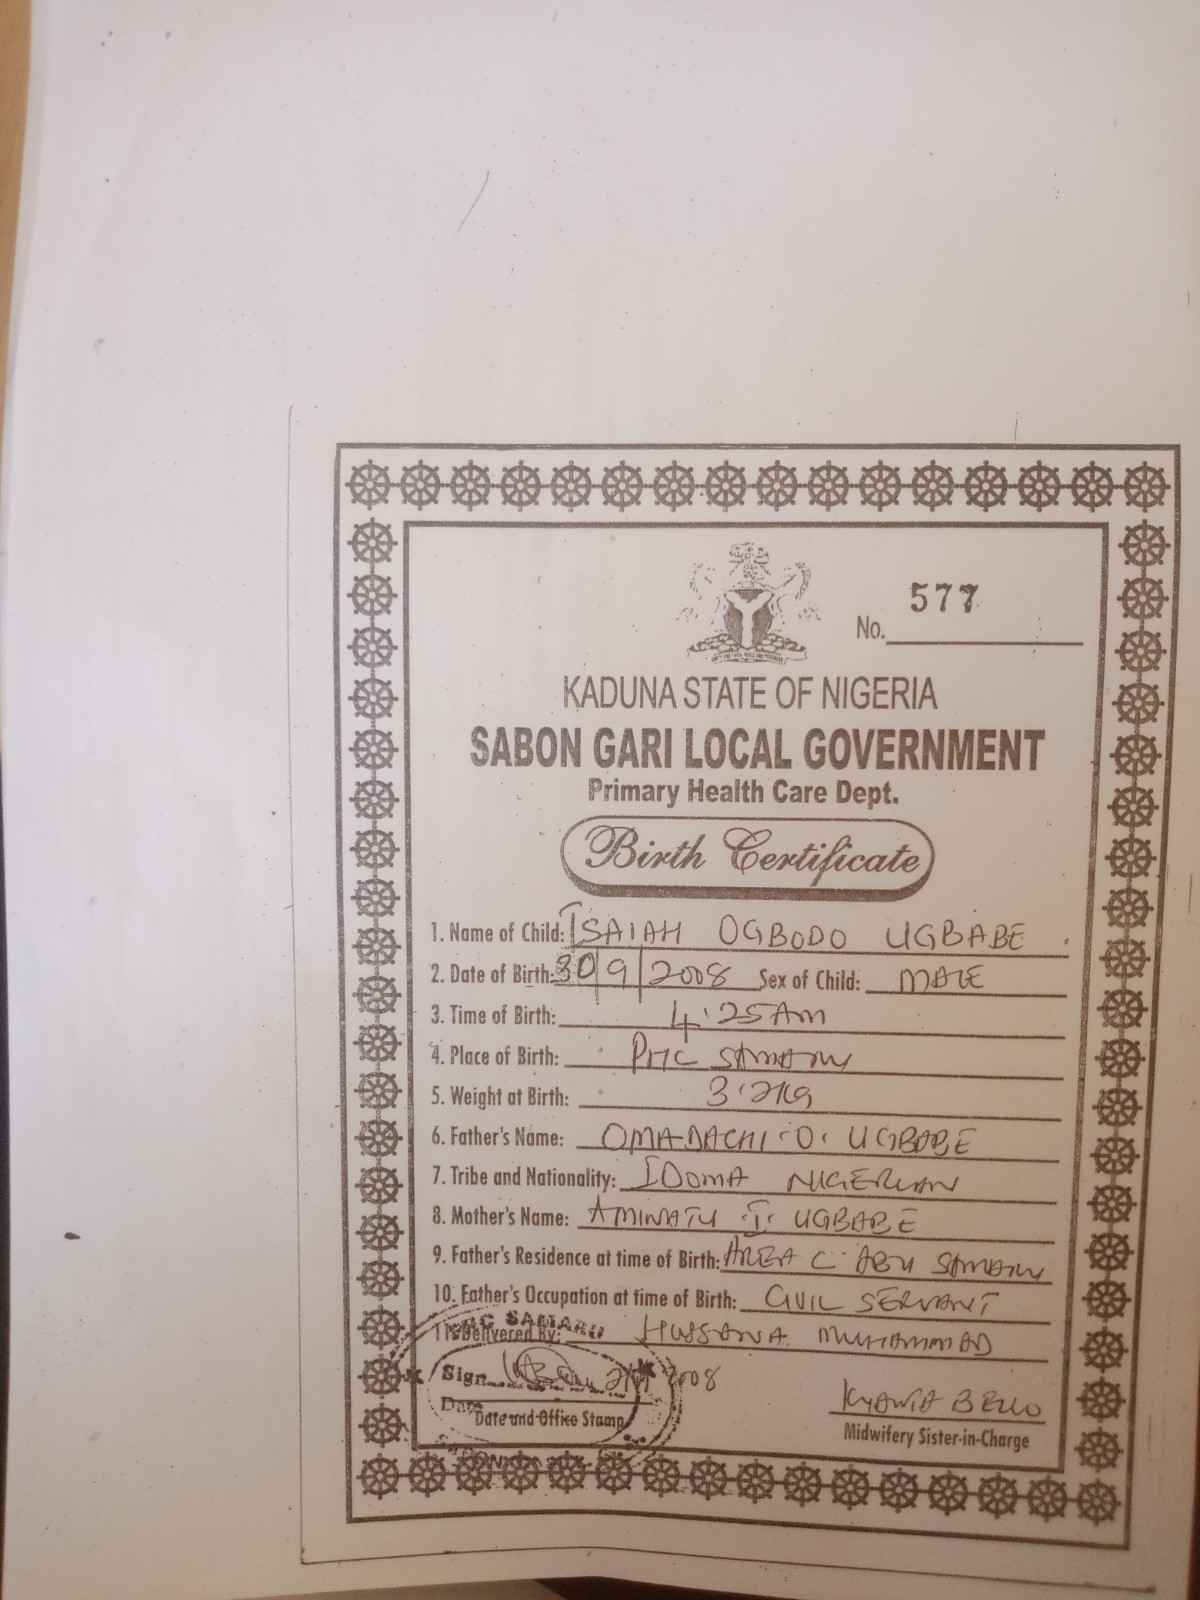 577
No.
KADUNA STATE OF NIGERIA
SABON GARI LOCAL GOVERNMENT
Primary Health Care Dept.
Birth Certificate
1. Name of Child: ISAIAH OGBODO UGBABE
2. Date of Birth: 30/9/2008 Sex of Child: MALE
3. Time of Birth: 4.25AM
4. Place of Birth: PHC SAMARU
5. Weight at Birth: 3.2KG
6. Father's Name: OMADACHI .O. UGBABE
7. Tribe and Nationality: IDOMA NIGERIAN
8. Mother's Name: AMINATU .I. UGBABE
9. Father's Residence at time of Birth: AREA C ABU SAMARU
10. Father's Occupation at time of Birth: CIVIL SERVANT
SAMARU
11. Delivered By: HUSSANA MUHAMMAD
Sign 2008
Date
Date and Office Stamp
BELLO
Midwifery Sister-in-Charge